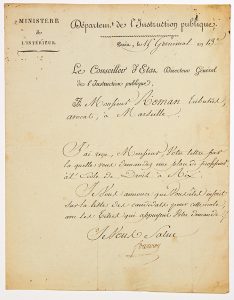 MINISTÈRE
de
L'INTÉRIEUR.
Départem.t de l'Instruction publique.
Paris, le 15 Germinal an 13
Le Conseiller d'Etat, Directeur Général
de l'Instruction publique,
À Monsieur Roman
avocat, à Marseille.
J'ai reçu, Monsieur, Votre lettre par
laquelle vous demandez une place de professeur
à l'école de Droit, à Aix.
Je Vous annonce que Vous êtes inscrit
sur la liste des candidats pour cette école,
avec les titres qui appuyent Votre demande.
Je Vous Salue
Fourcroy